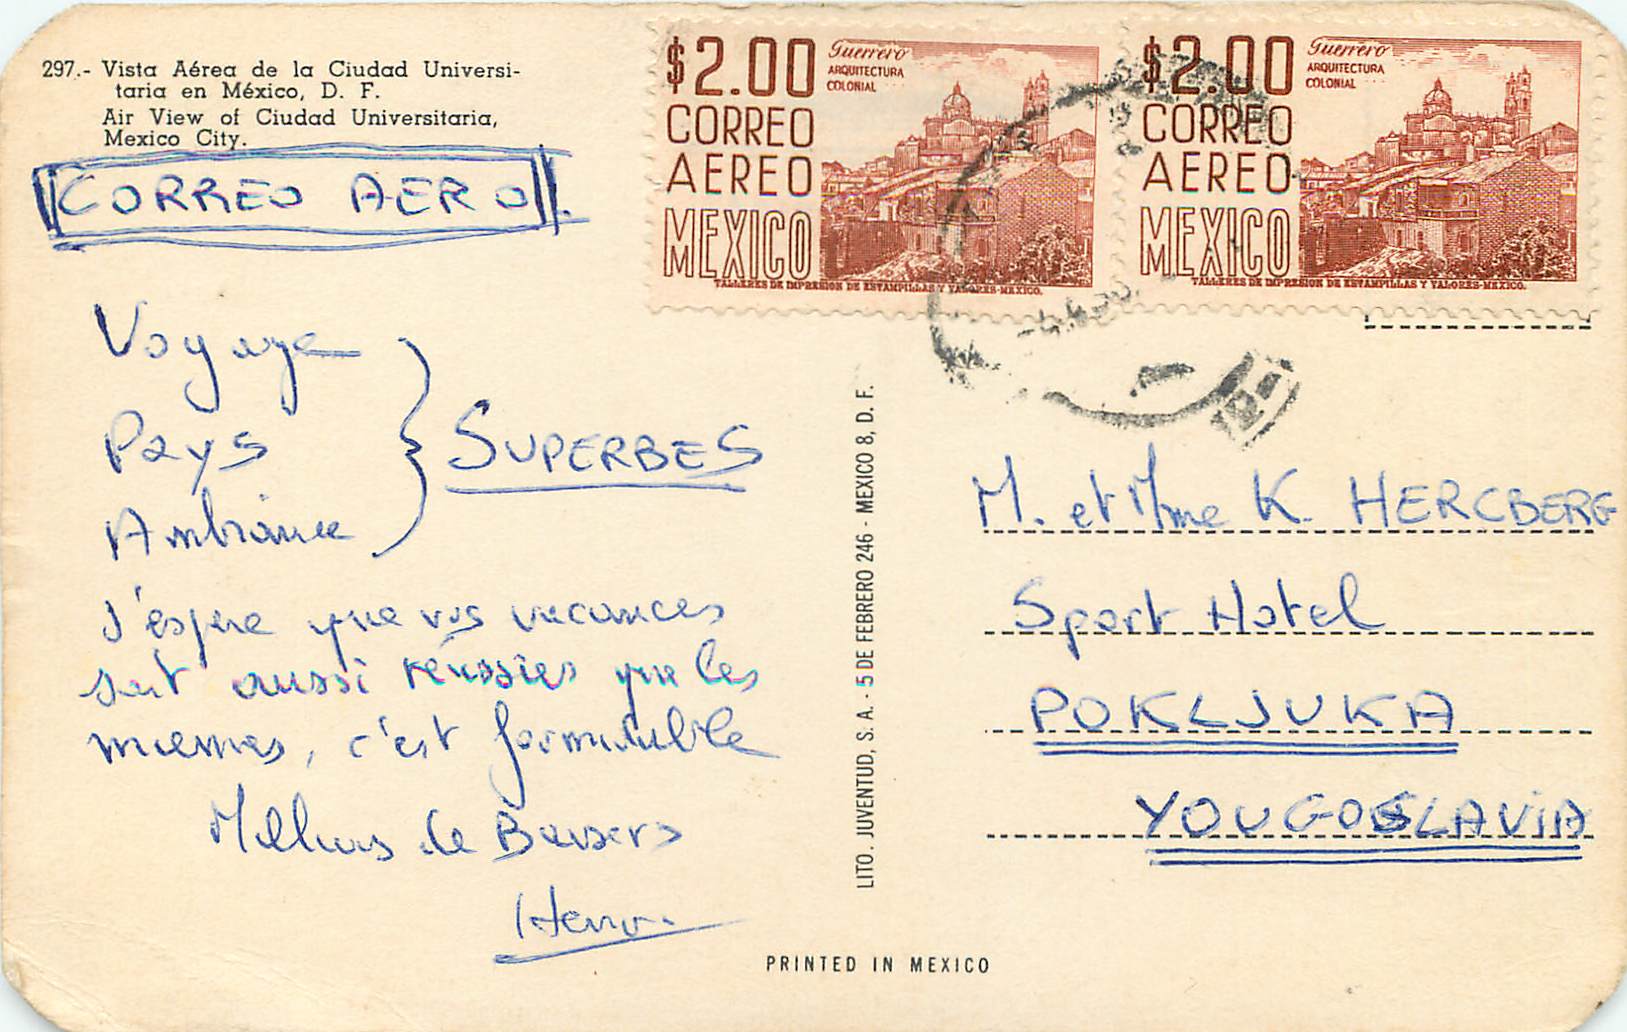 297.- Vista Aérea de la Ciudad Universi-
taria en México, D. F.
Air View of Ciudad Universitaria,
Mexico City.
CORREO AERO
$2.00
CORREO
AEREO
MEXICO
Guerrero
ARQUITECTURA
COLONIAL
TALLERES DE IMPRESION DE ESTAMPILLAS Y VALORES-MEXICO.
$2.00
CORREO
AEREO
MEXICO
Guerrero
ARQUITECTURA
COLONIAL
TALLERES DE IMPRESION DE ESTAMPILLAS Y VALORES-MEXICO.
Voyage
Pays
Ambiance
SUPERBES
J'espère que vos vacances
sont aussi réussies que les
miennes, c'est formidable
Milliers de Baisers
Henri
LITO. JUVENTUD, S. A. - 5 DE FEBRERO 246 - MEXICO 8, D. F.
M. et Mme K. HERCBERG
Sport Hotel
POKLJUKA
YOUGOSLAVIA
PRINTED IN MEXICO